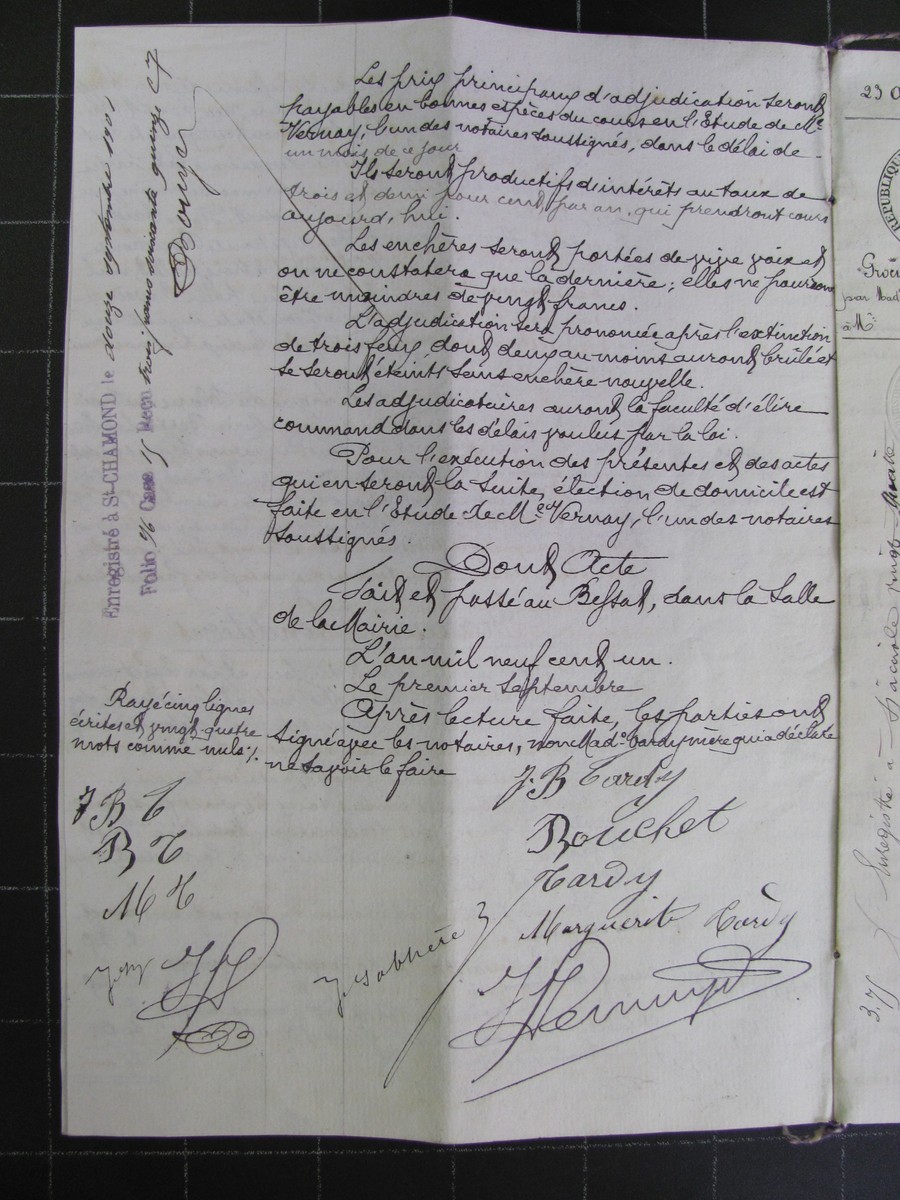 Les prix principaux d'adjudication seront
payables en bonnes espèces du cours en l'Etude de Me
Vernay, l'un des notaires soussignés, dans le délai de
un mois de ce jour
Ils seront productifs d'intérêts au taux de
trois et demi pour cent, par an, qui prendront cours
aujourd'hui.
Les enchères seront portées de vive voix et
on ne constatera que la dernière; elles ne pourront
être moindres de vingt francs.
L'adjudication sera prononcée après l'extinction
de trois feux dont deux au moins auront brûlé et
se seront éteints sans enchère nouvelle.
Les adjudicataires auront la faculté d'élire
command dans les délais voulus par la loi.
Pour l'exécution des présentes et des actes
qui en seront la suite, élection de domicile est
faite en l'Etude de Me Vernay, l'un des notaires
soussignés.
Dont Acte
Fait et passé au Bessat, dans la Salle
de la Mairie.
L'an mil neuf cent un.
Le premier Septembre
Après lecture faite, les parties ont
signé avec les notaires, non Made Tardy mère qui a déclaré
ne savoir le faire
Rayé cinq lignes
écrites et vingt-quatre
mots comme nuls ./.
J B T
R T
M T
J. B Tardy
Rouchet
Tardy
Marguerite Tardy
Enregistré à St-CHAMOND le douze septembre 1901
Folio 76 Case 15 Reçu trois francs soixante quinze c
23 O
REPUBLIQUE
par Mad
à M
Enregistré à
3.75